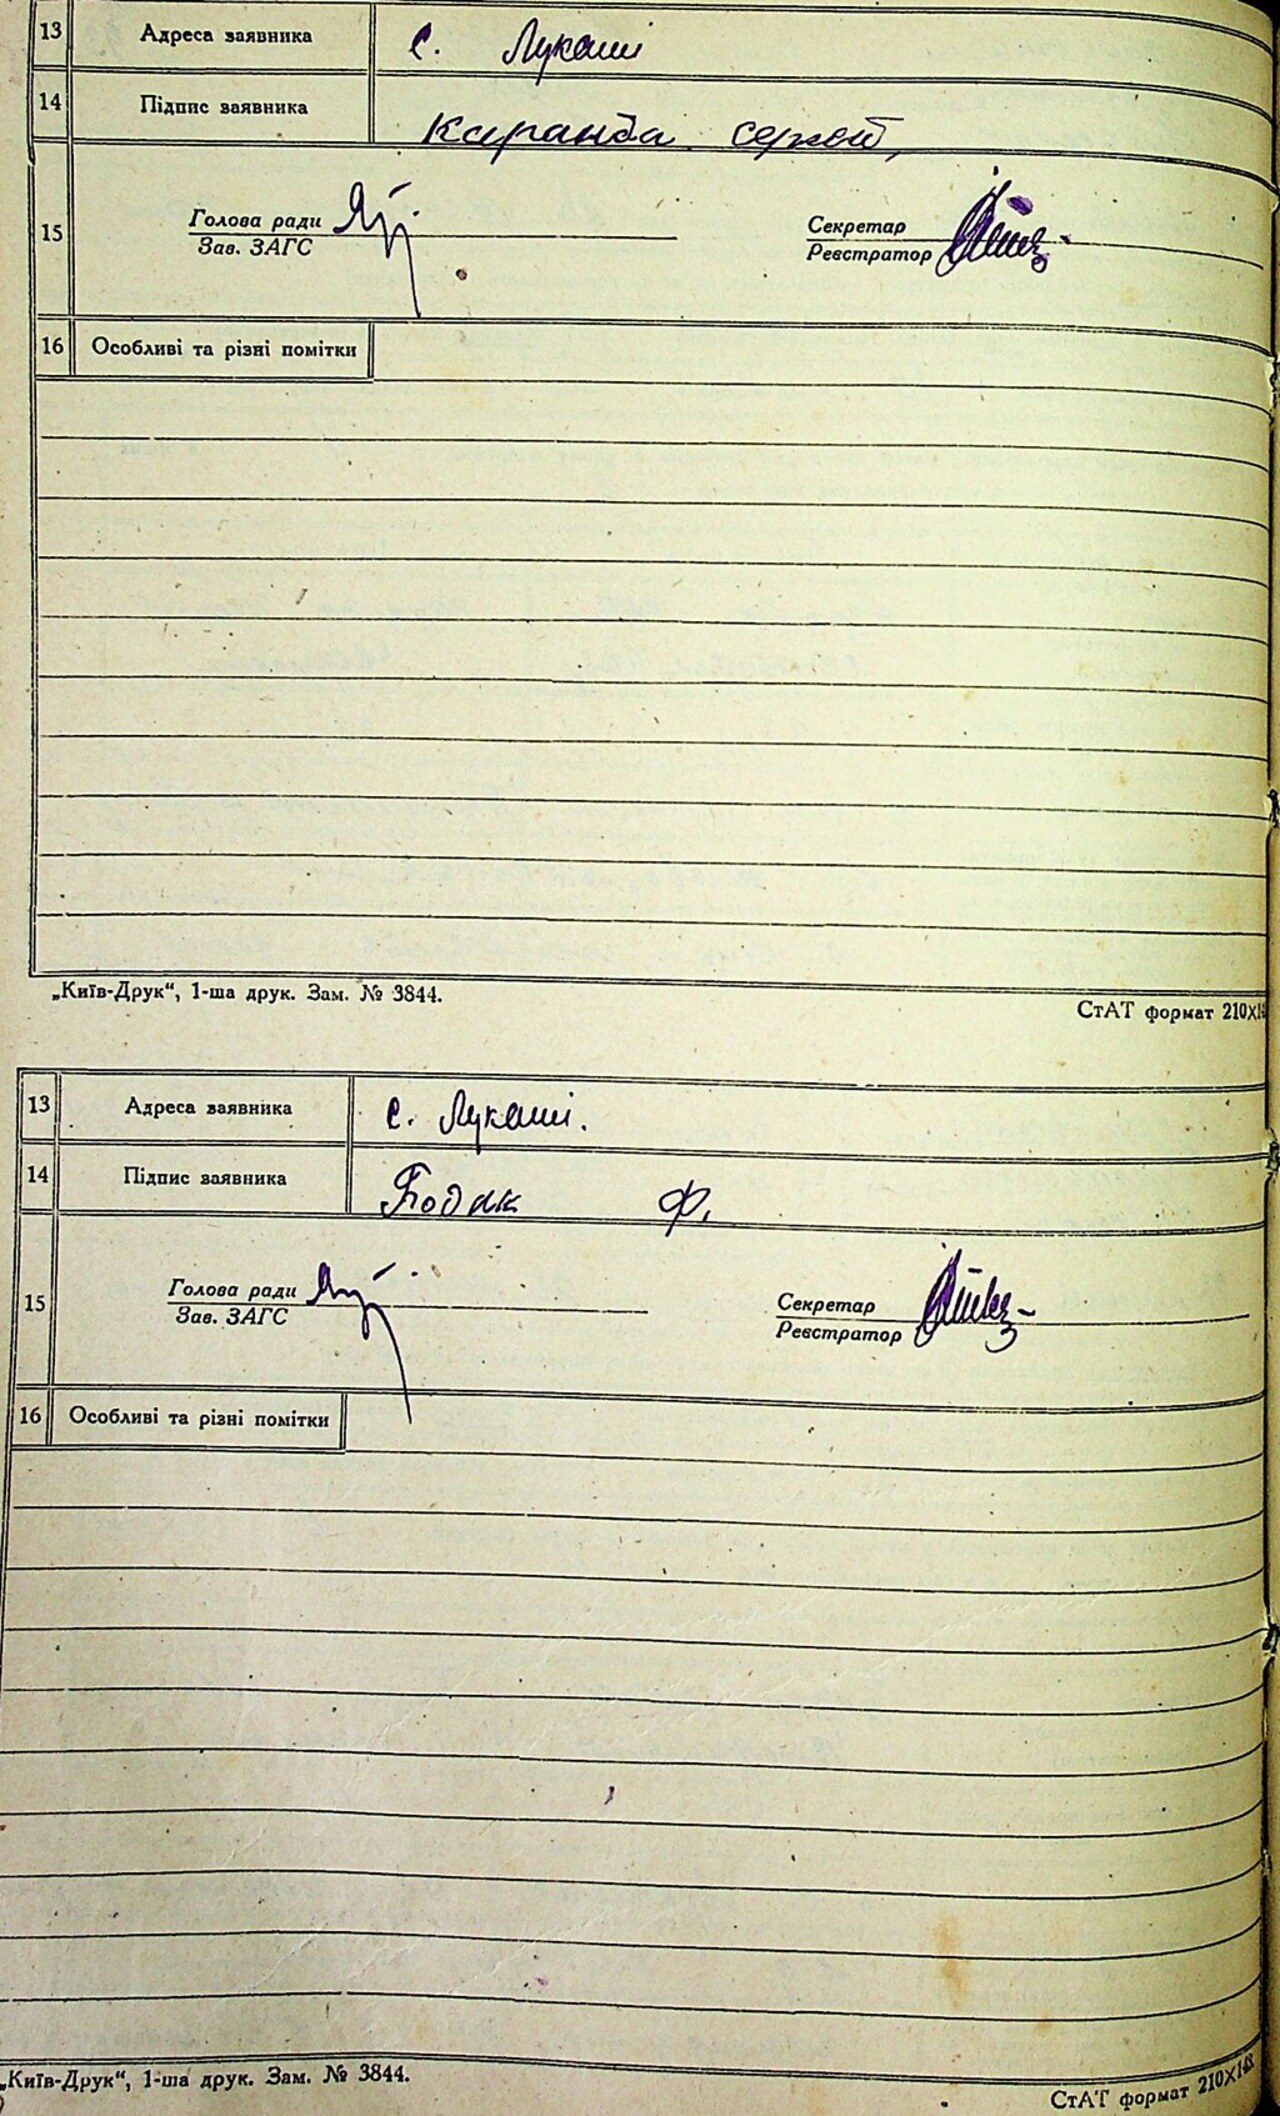 13 Адреса заявника с. Лукаші
14 Підпис заявника Каранда сергей,
Голова ради Секретар
15
Зав. ЗАГС Реєстратор
16 Особливі та різні помітки
„Київ-Друк“, 1-ша друк. Зам. № 3844.
СтАТ формат 210X14
13 Адреса заявника с. Лукаші.
14 Підпис заявника Бодак Ф.
Голова ради Секретар
15
Зав. ЗАГС Реєстратор
16 Особливі та різні помітки
„Київ-Друк“, 1-ша друк. Зам. № 3844.
СтАТ формат 210X148